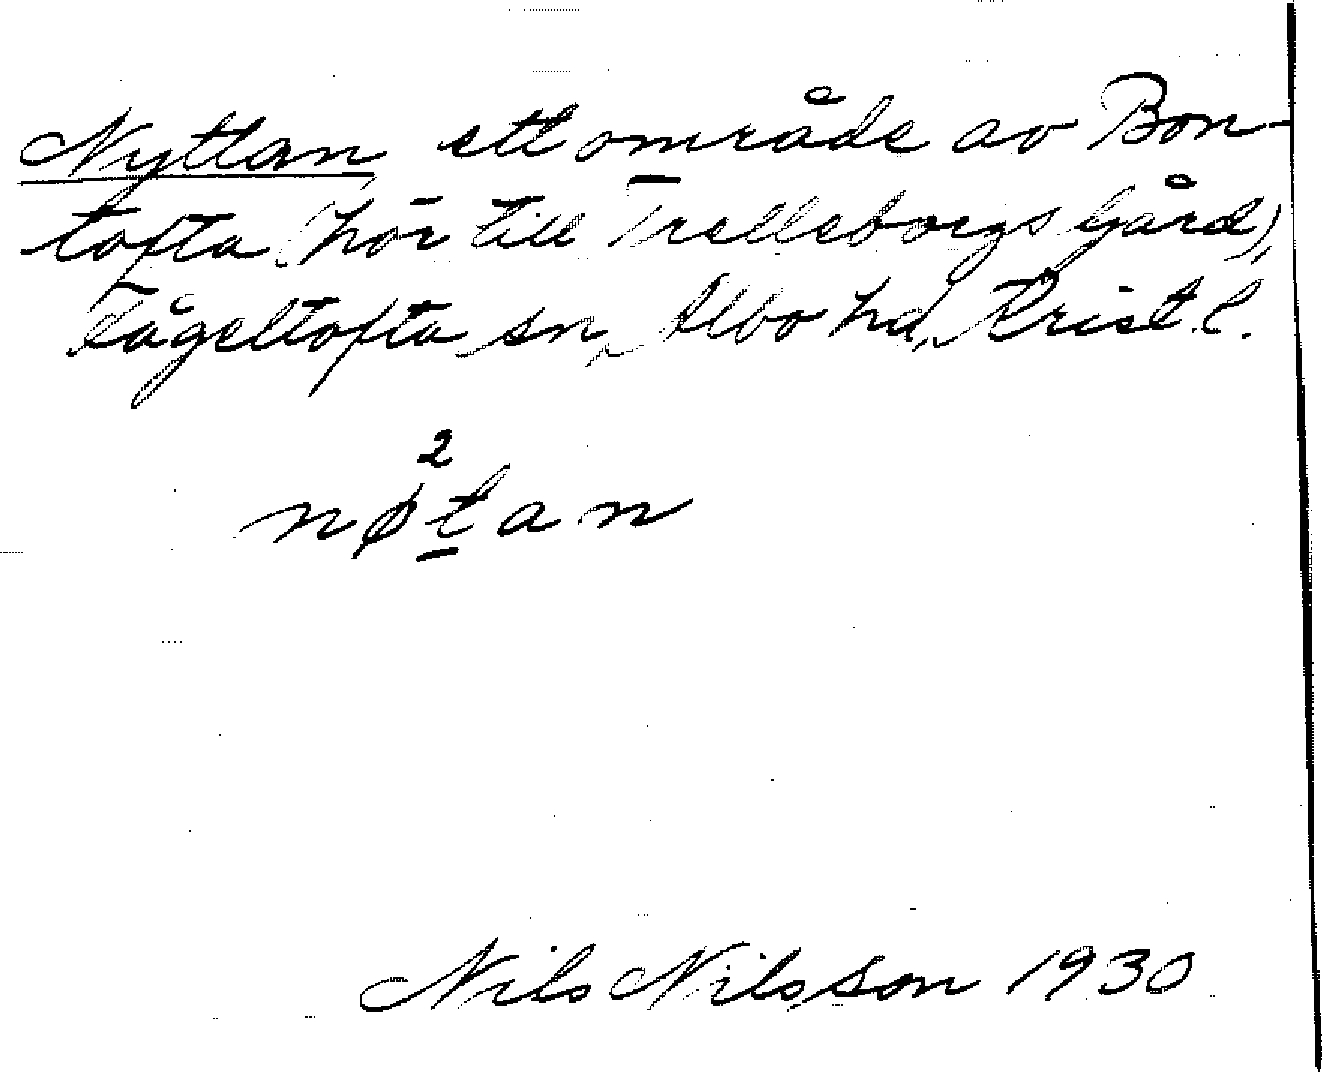 Nyttan ett område av Bon-
tofta (hör till Trelleborgs gård),
Tågeltofta sn, Albo hd, Krist. l.
2
nøtan
Nils Nilsson 1930